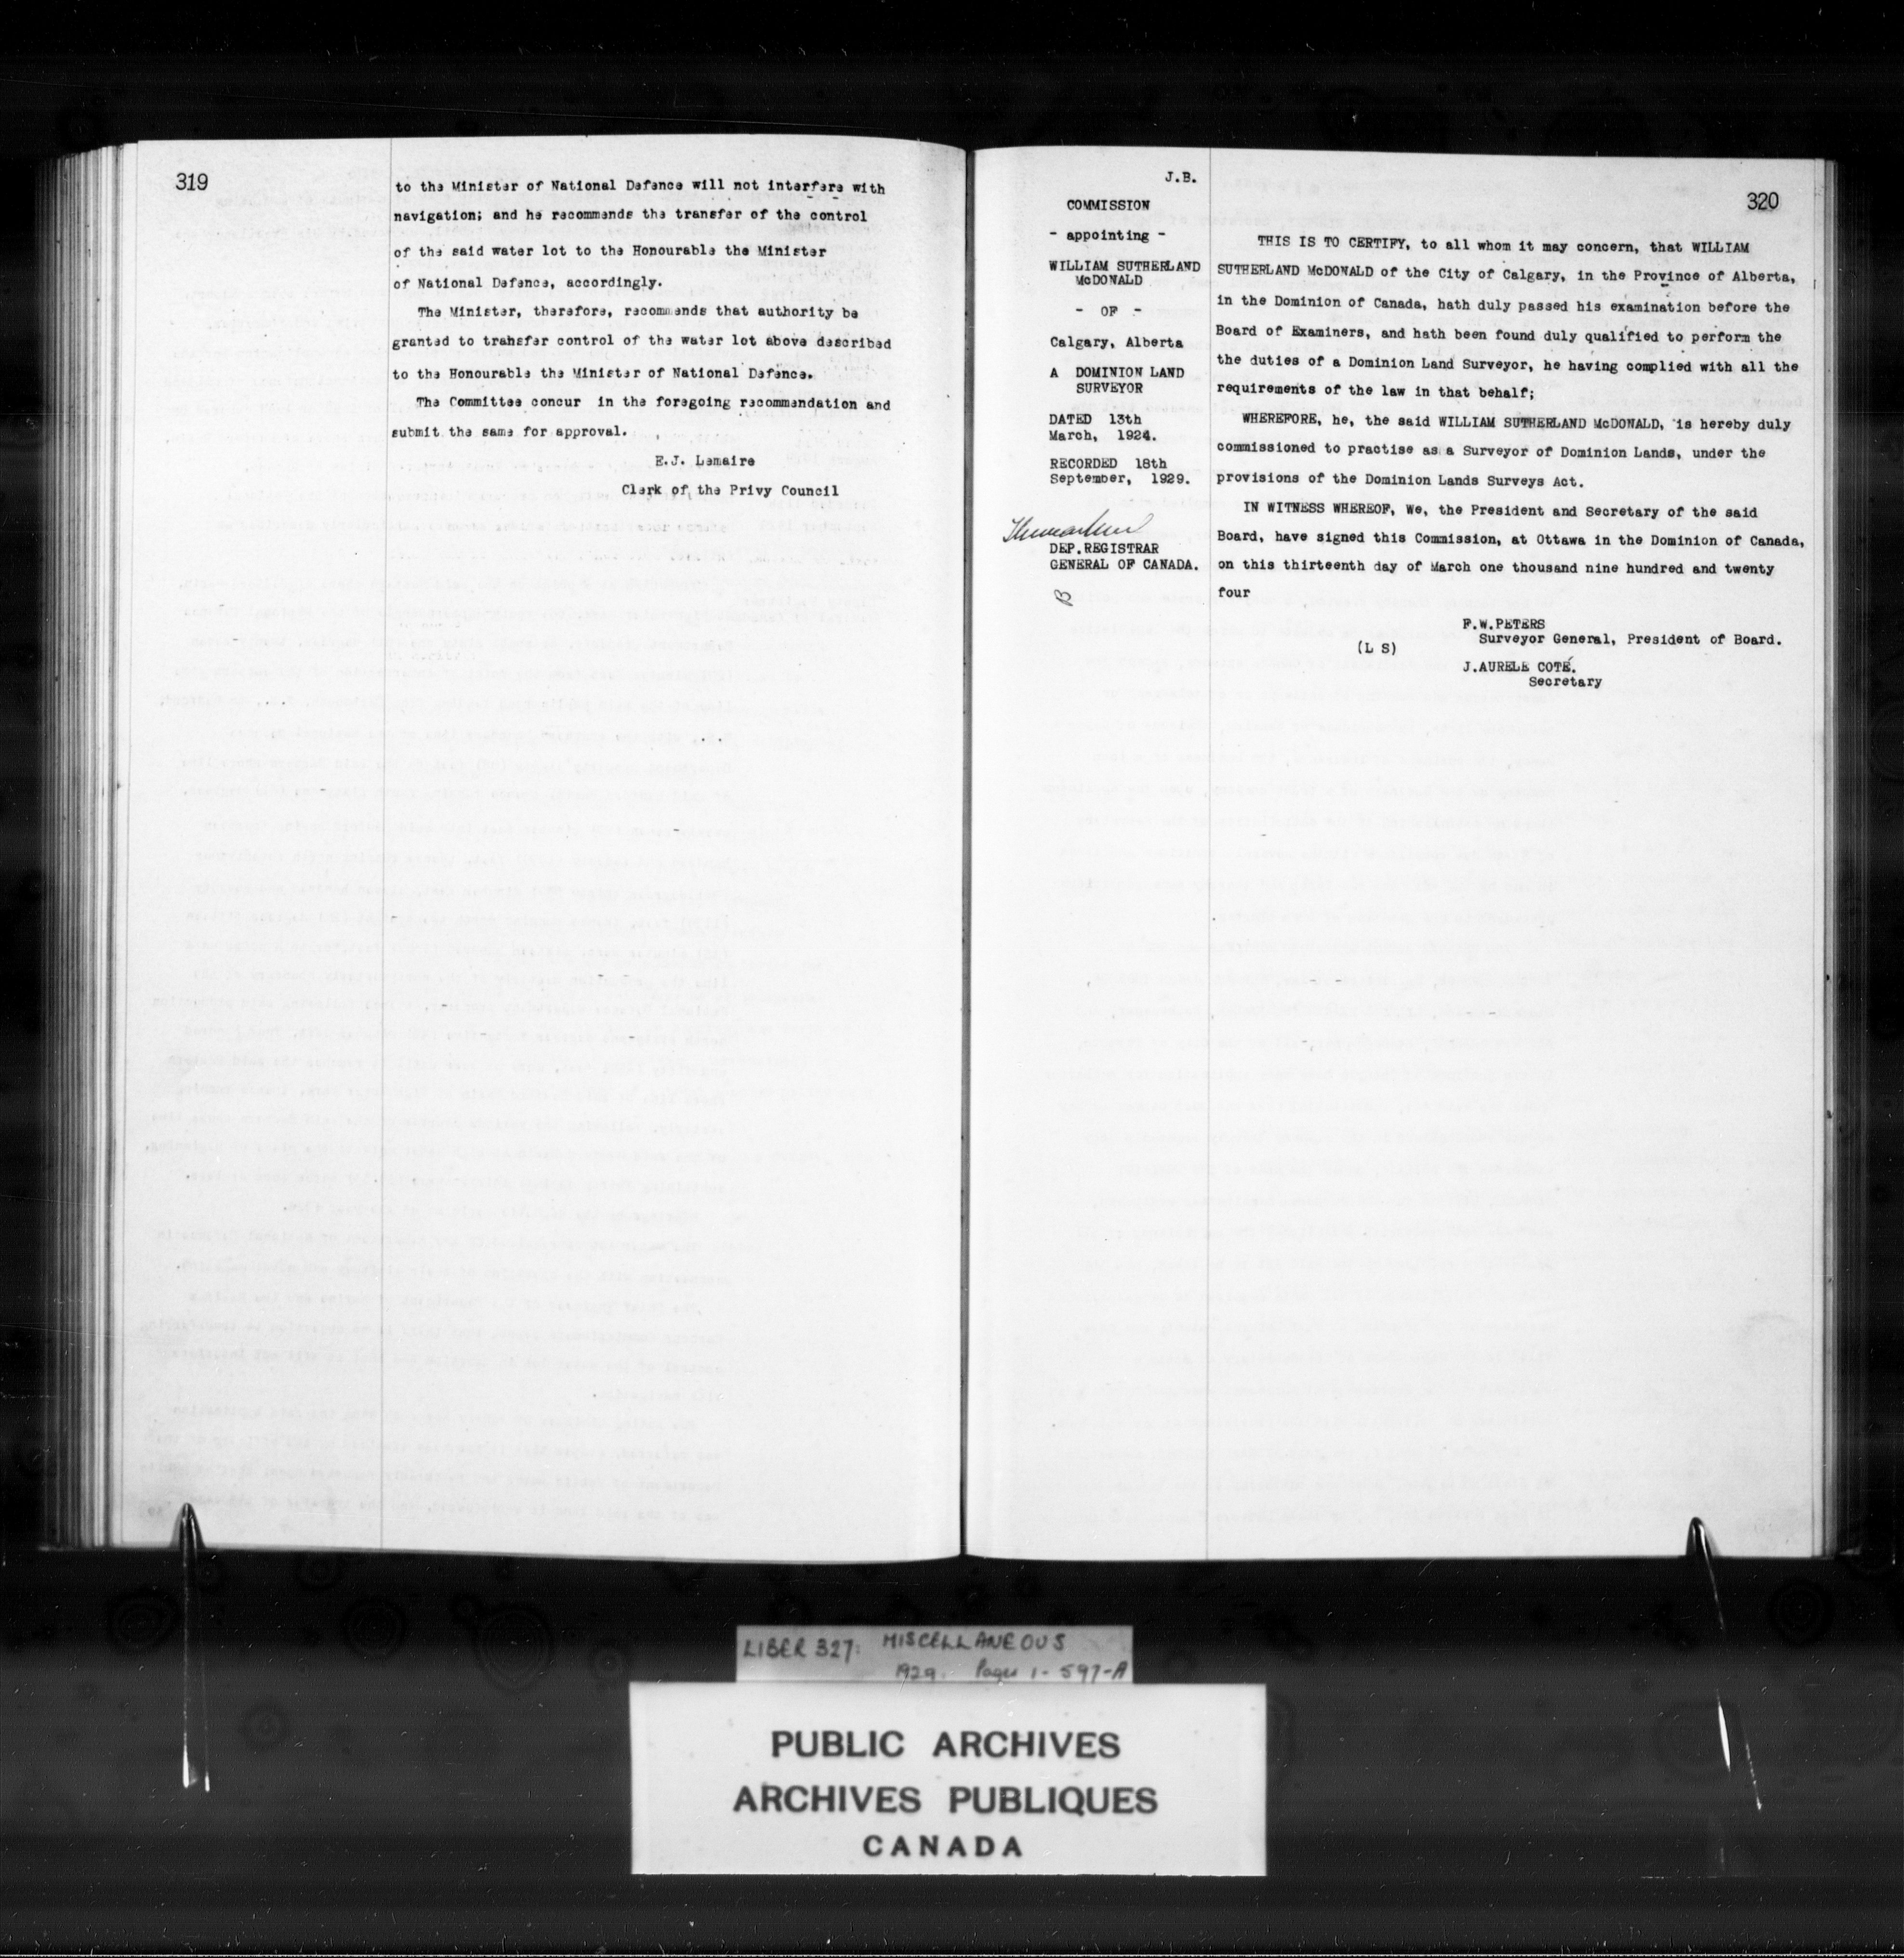 319
to the Minister of National Defence will not interfere with
navigation; and he recommends the transfer of the control
of the said water lot to the Honourable the Minister
of National Defence, accordingly.
The Minister, therefore, recommends that authority be
granted to trahsfer control of the water lot above described
to the Honourable the Minister of National Defence.
The Committee concur in the foregoing recommendation and
submit the same for approval.
E.J. Lemaire
Clerk of the Privy Council
J.B.
COMMISSION
- appointing -
WILLIAM SUTHERLAND
McDONALD
- OF -
Calgary, Alberta
A DOMINION LAND
SURVEYOR
DATED 13th
March, 1924.
RECORDED 18th
September, 1929.
DEP.REGISTRAR
GENERAL OF CANADA.
320
THIS IS TO CERTIFY, to all whom it may concern, that WILLIAM
SUTHERLAND McDONALD of the City of Calgary, in the Province of Alberta,
in the Dominion of Canada, hath duly passed his examination before the
Board of Examiners, and hath been found duly qualified to perform the
the duties of a Dominion Land Surveyor, he having complied with all the
requirements of the law in that behalf;
WHEREFORE, he, the said WILLIAM SUTHERLAND McDONALD, is hereby duly
commissioned to practise as a Surveyor of Dominion Lands, under the
provisions of the Dominion Lands Surveys Act.
IN WITNESS WHEREOF, We, the President and Secretary of the said
Board, have signed this Commission, at Ottawa in the Dominion of Canada,
on this thirteenth day of March one thousand nine hundred and twenty
four
F.W.PETERS
Surveyor General, President of Board.
(L S)
J.AURELE COTÉ.
Secretary
LIBER 327: MISCELLANEOUS
1929. Pages 1-597-A
PUBLIC ARCHIVES
ARCHIVES PUBLIQUES
CANADA